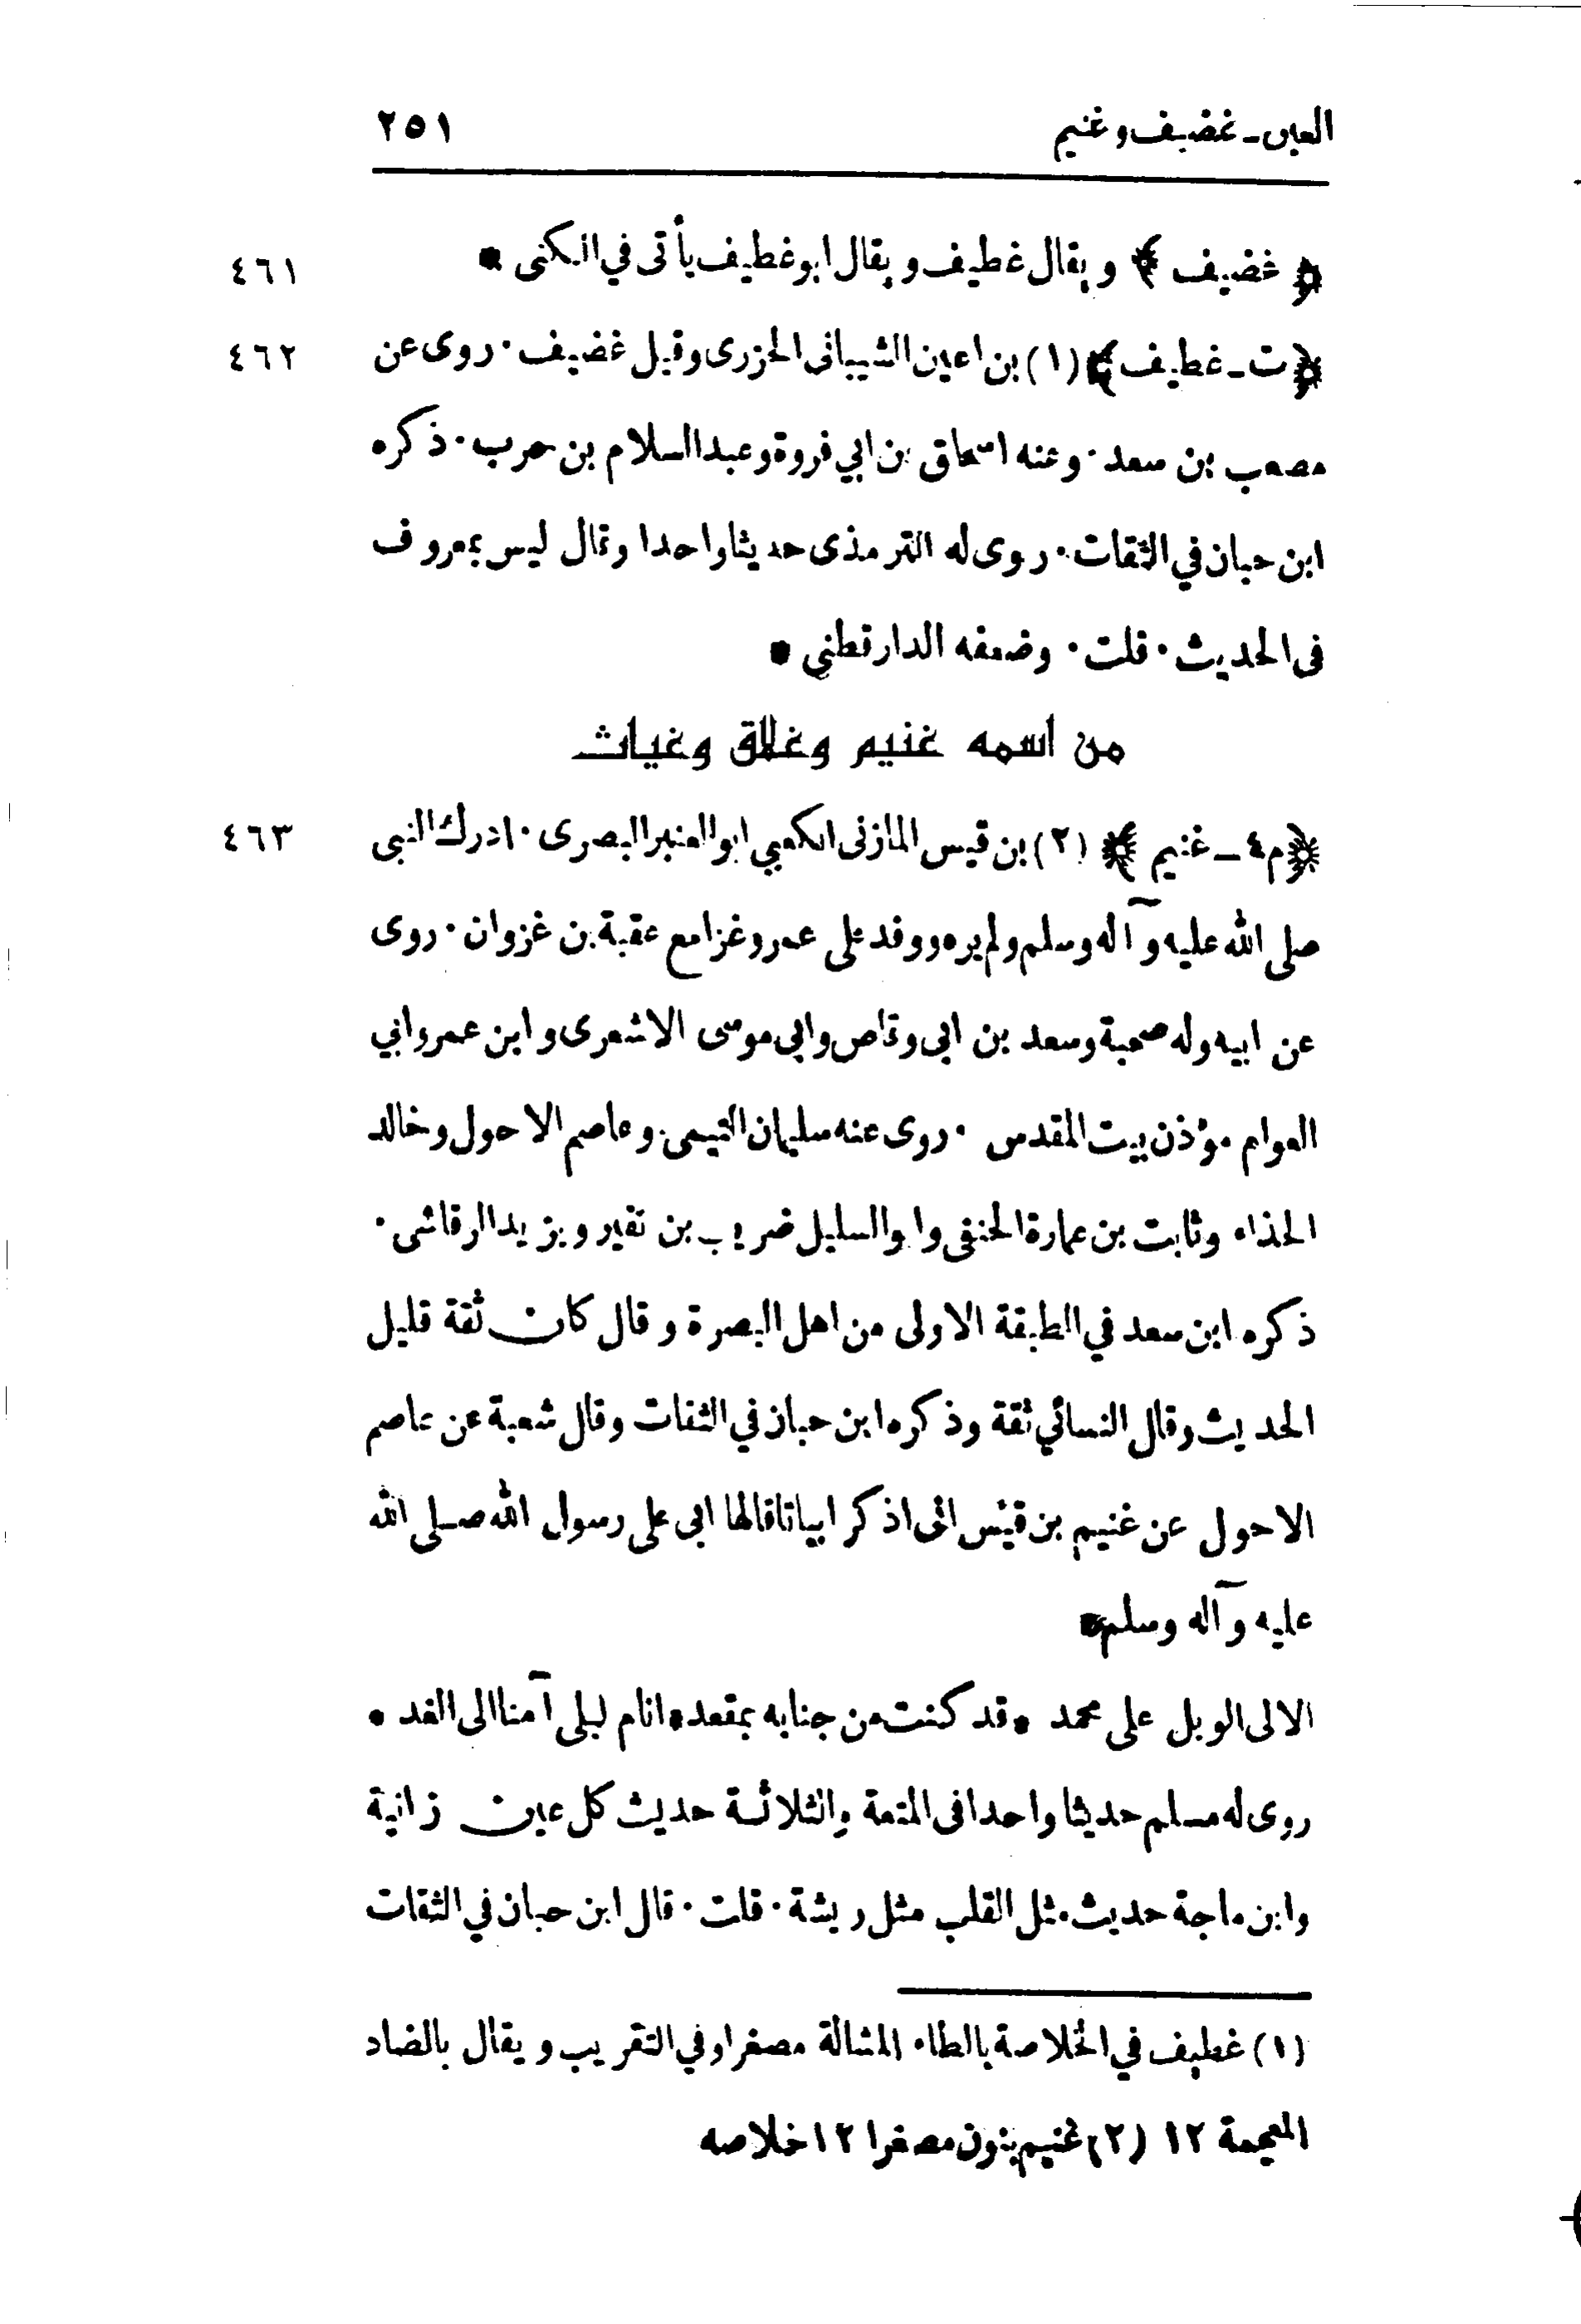 الغين - غضيف وغنيم ٢٥١
﴿ غضيف ﴾ ويقال غطيف ويقال ابو غطيف يأتى في الكنى * ٤٦١
﴿ ت - غطيف ﴾ (١) بن اعين الشيبانى الجزرى وقيل غضيف · روى عن ٤٦٢
مصعب بن سعد · وعنه اسحاق بن ابي فروة وعبد السلام بن حرب · ذكره
ابن حبان في الثقات · روى له الترمذى حديثا واحدا وقال ليس بمعروف
فى الحديث · قلت · وضعفه الدارقطني *
من اسمه غنيم وغلاق وغياث
﴿ م ٤ - غنيم ﴾ (٢) بن قيس المازنى الكعبي ابو العنبر البصرى · ادرك النبى ٤٦٣
صلى الله عليه وآله وسلم ولم يره ووفد على عمر وغزا مع عقبة بن غزوان · روى
عن ابيه وله صحبة وسعد بن ابى وقاص وابى موسى الاشعرى وابن عمر وابي
العوام مؤذن بيت المقدس · روى عنه سليمان التيمى وعاصم الاحول وخالد
الحذاء وثابت بن عمارة الحنفى وابو السليل ضريب بن نفير ويزيد الرقاشى ·
ذكره ابن سعد في الطبقة الاولى من اهل البصرة وقال كان ثقة قليل
الحديث وقال النسائي ثقة وذكره ابن حبان في الثقات وقال شعبة عن عاصم
الاحول عن غنيم بن قيس انى اذكر ابياتا قالها ابى على رسول الله صلى الله
عليه وآله وسلم *
الا لى الويل على محمد * قد كنت من جنابه بمقعد * انام ليلى آمنا الى الغد *
روى له مسلم حديثا واحدا فى المتعة والثلاثة حديث كل عين زانية
وابن ماجة حديث مثل القلب مثل ريشة · قلت · قال ابن حبان في الثقات
(١) غطيف في الخلاصة بالطاء المشالة مصغرا وفي التقريب ويقال بالضاد
المعجمة ١٢ (٢) غنيم بنون مصغرا ١٢ خلاصه